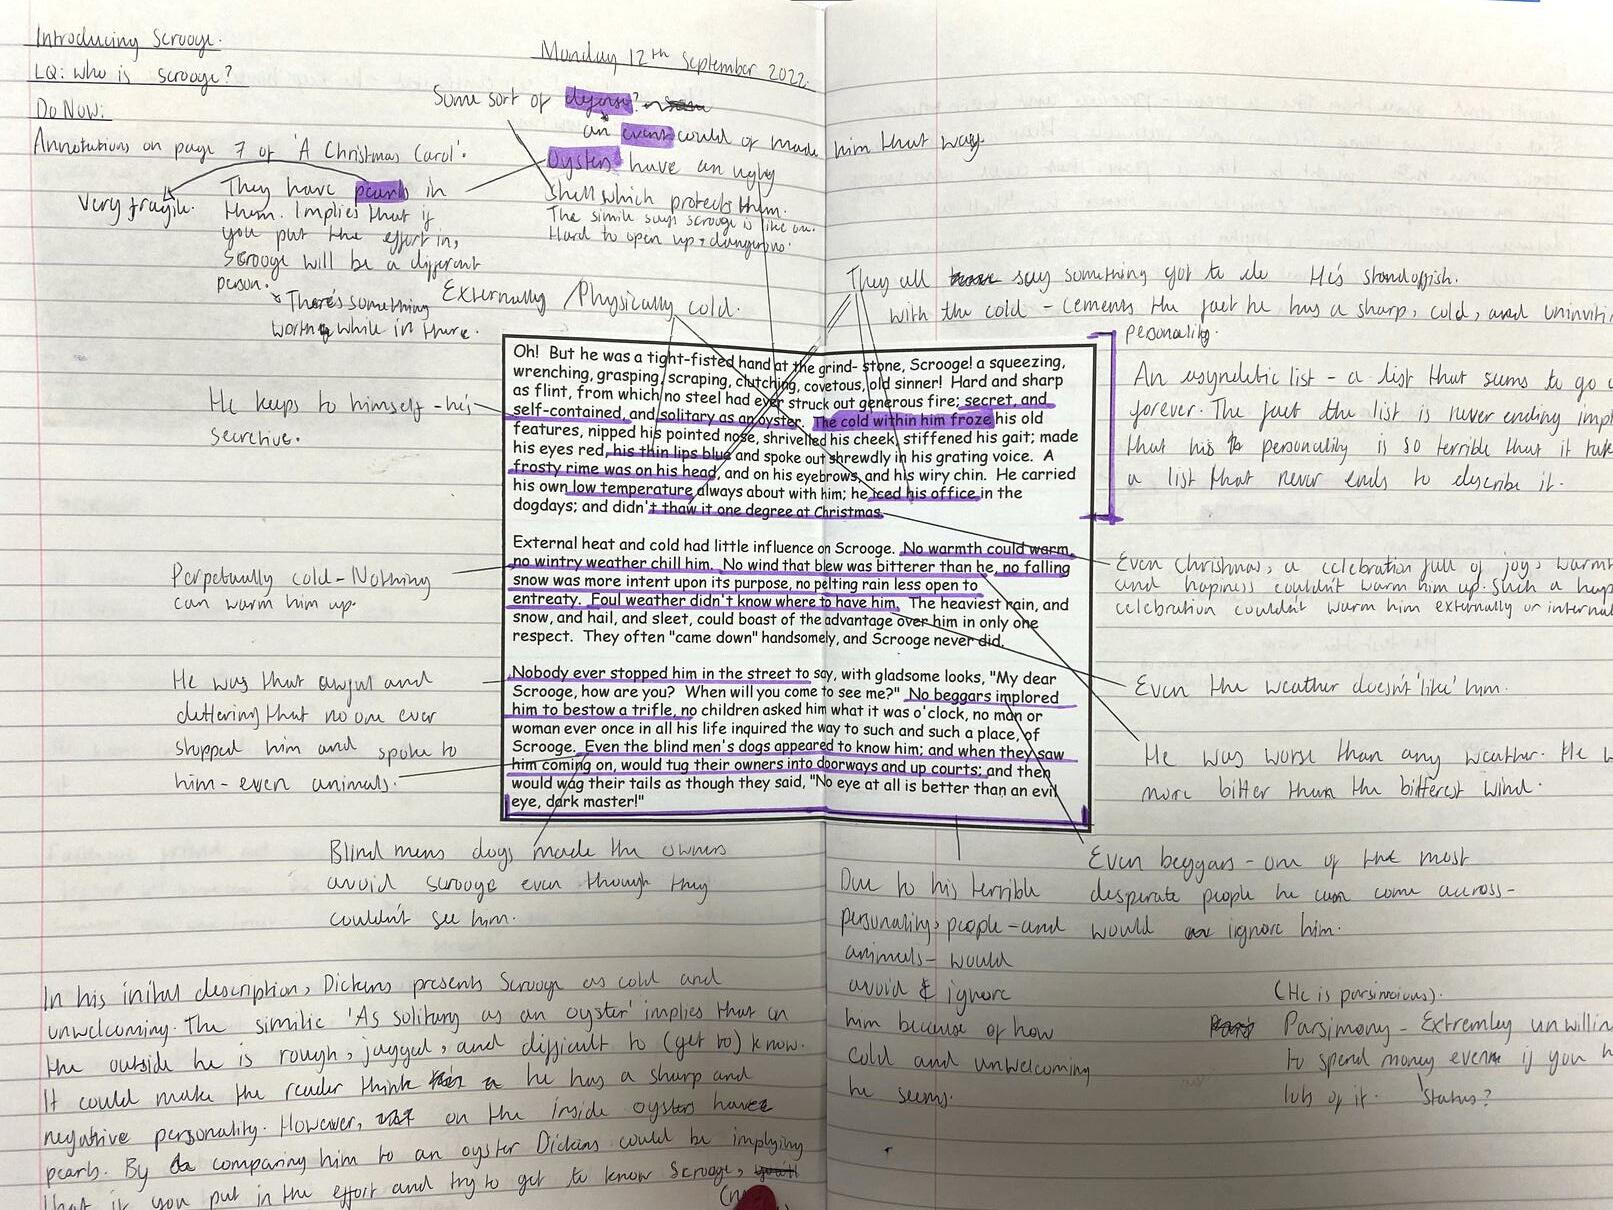 Introducing Scrooge.
LQ: Who is scrooge?
Monday 12th September 2022.
Do Now:
Annotations on page 7 of 'A Christmas Carol'.
Some sort of defense?
an event could of made him that way.
Oysters have an ugly
shell which protects them.
The simile says scrooge is like one.
Hard to open up, dangerous.
Very fragile.
They have pearls in
them. Implies that if
you put the effort in,
Scrooge will be a different
person.
There's something
worth while in there.
Externally / Physically cold.
They all say something got to do
with the cold - cements the fact he has a sharp, cold, and
personality.
He's standoffish.
He keeps to himself - he's
secretive.
Oh! But he was a tight-fisted hand at the grind- stone, Scrooge! a squeezing,
wrenching, grasping, scraping, clutching, covetous, old sinner! Hard and sharp
as flint, from which no steel had ever struck out generous fire; secret, and
self-contained, and solitary as an oyster. The cold within him froze his old
features, nipped his pointed nose, shrivelled his cheek, stiffened his gait; made
his eyes red, his thin lips blue and spoke out shrewdly in his grating voice. A
frosty rime was on his head, and on his eyebrows, and his wiry chin. He carried
his own low temperature always about with him; he iced his office in the
dogdays; and didn't thaw it one degree at Christmas.
External heat and cold had little influence on Scrooge. No warmth could warm,
no wintry weather chill him. No wind that blew was bitterer than he, no falling
snow was more intent upon its purpose, no pelting rain less open to
entreaty. Foul weather didn't know where to have him. The heaviest rain, and
snow, and hail, and sleet, could boast of the advantage over him in only one
respect. They often "came down" handsomely, and Scrooge never did.
Nobody ever stopped him in the street to say, with gladsome looks, "My dear
Scrooge, how are you? When will you come to see me?" No beggars implored
him to bestow a trifle, no children asked him what it was o'clock, no man or
woman ever once in all his life inquired the way to such and such a place, of
Scrooge. Even the blind men's dogs appeared to know him; and when they saw
him coming on, would tug their owners into doorways and up courts; and then
would wag their tails as though they said, "No eye at all is better than an evil
eye, dark master!"
An asyndetic list - a list that seems to go
forever. The fact the list is never ending
that his personality is so terrible that it
a list that never ends to describe it.
Perpetually cold - Nothing
can warm him up.
Even Christmas, a celebration full of joy,
and hapiness couldn't warm him up. Such a
celebration couldn't warm him externally or
He was that awful and
detterring that no one ever
stopped him and spoke to
him - even animals.
Even the weather doesn't 'like' him.
He was worse than any weather. He
more bitter than the bitterest wind.
Blind mens dogs made the owners
avoid scrooge even though they
couldn't see him.
Due to his terrible
personality, people - and
animals - would
avoid & ignore
him because of how
cold and unwelcoming
he seems.
Even beggars - one of the most
desperate people he can come across -
would ignore him.
(He is parsimonious).
Parsimony - Extremley
to spend money even if you
lots of it.
Status?
In his initial description, Dickens presents Scrooge as cold and
unwelcoming. The similie 'As solitary as an oyster' implies that on
the outside he is rough, jagged, and difficult to (get to) know.
It could make the reader think he has a sharp and
negative personality. However, on the inside oysters have
pearls. By comparing him to an oyster Dickens could be implying
that if you put in the effort and try to get to know Scrooge,